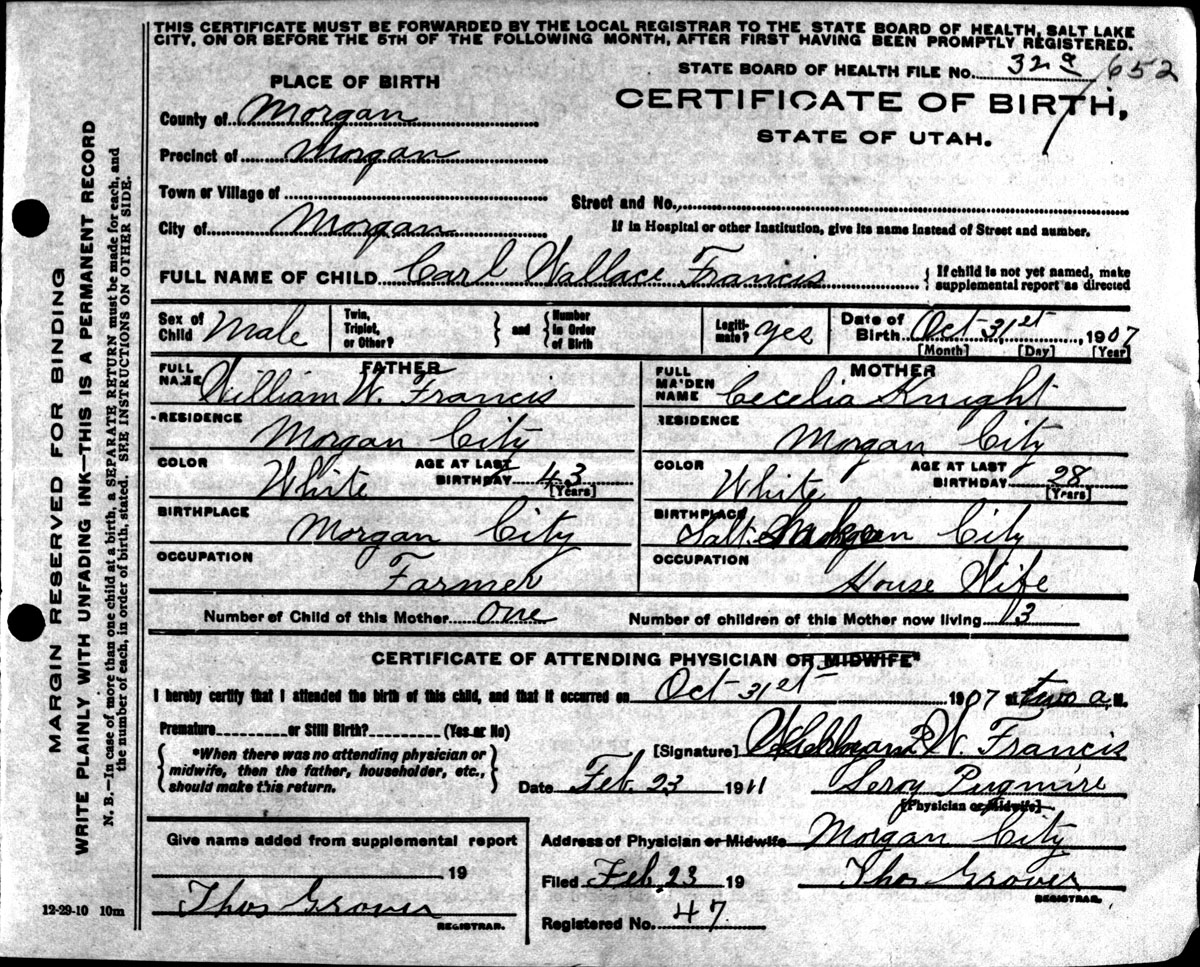 THIS CERTIFICATE MUST BE FORWARDED BY THE LOCAL REGISTRAR TO THE STATE BOARD OF HEALTH, SALT LAKE
CITY, ON OR BEFORE THE 5TH OF THE FOLLOWING MONTH, AFTER FIRST HAVING BEEN PROMPTLY REGISTERED.
PLACE OF BIRTH
STATE BOARD OF HEALTH FILE No. 329/652
CERTIFICATE OF BIRTH,
STATE OF UTAH.
County of Morgan
Precinct of Morgan
Town or Village of
Street and No.
City of Morgan
If in Hospital or other Institution, give its name instead of Street and number.
FULL NAME OF CHILD Carl Wallace Francis
{ If child is not yet named, make
supplemental report as directed
Sex of Child Male
Twin, Triplet, or Other? } and { Number in Order of Birth
Legitimate? yes
Date of Birth Oct 31st, 1907
[Month] [Day] [Year]
FATHER
FULL NAME William W. Francis
MOTHER
FULL MAIDEN NAME Cecelia Knight
RESIDENCE Morgan City
RESIDENCE Morgan City
COLOR White AGE AT LAST BIRTHDAY 43 [Years]
COLOR White AGE AT LAST BIRTHDAY 28 [Years]
BIRTHPLACE Morgan City
BIRTHPLACE Salt Lake City
OCCUPATION Farmer
OCCUPATION House Wife
Number of Child of this Mother one
Number of children of this Mother now living 3
CERTIFICATE OF ATTENDING PHYSICIAN OR MIDWIFE*
I hereby certify that I attended the birth of this child, and that it occurred on Oct 31st 1907 at two a.M.
Premature or Still Birth? (Yes or No)
{ *When there was no attending physician or
midwife, then the father, householder, etc.,
should make this return. }
[Signature] W. Francis
Date Feb. 23 1911
Leroy Pugmire
[Physician or Midwife]
Give name added from supplemental report
19
Thos Grover
REGISTRAR.
Address of Physician or Midwife Morgan City
Filed Feb. 23 19
Thos Grover
REGISTRAR.
Registered No. 47
12-29-10 10m
MARGIN RESERVED FOR BINDING
WRITE PLAINLY WITH UNFADING INK—THIS IS A PERMANENT RECORD
N. B.—In case of more than one child at a birth, a SEPARATE RETURN must be made for each, and
the number of each, in order of birth, stated. SEE INSTRUCTIONS ON OTHER SIDE.